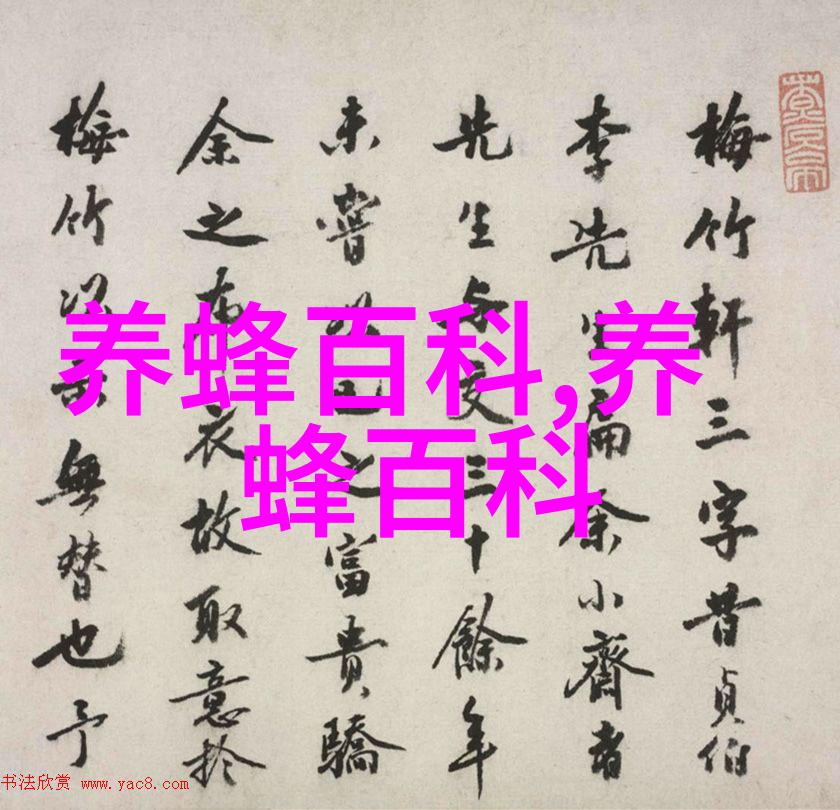 梅竹軒三字昔貞伯
李先生扁余小齋者
先生与交三十餘年
未嘗以之富貴驕
余之布衣故取意於
梅竹況無替也予
养蜂百科,养
蜂百科
书法欣赏 www.yac8.com